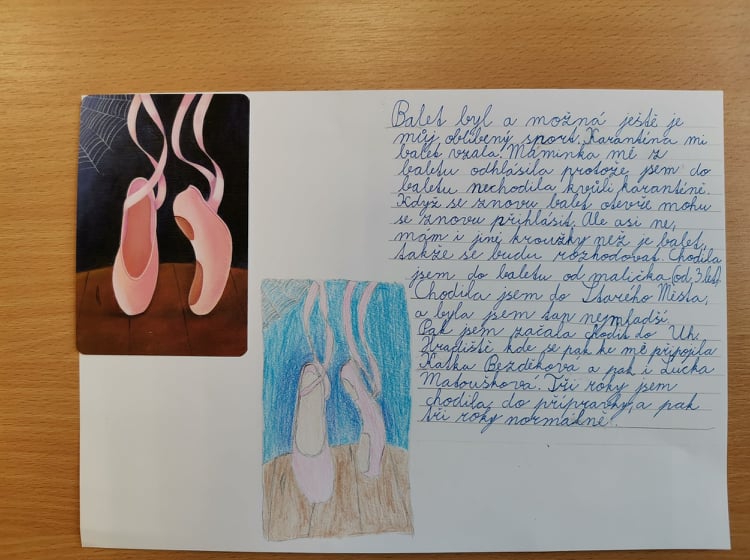 Balet byl a možná ještě je
můj oblíbený sport. Karanténa mi
balet vzala. Maminka mě z
baletu odhlásila protože jsem do
baletu nechodila kvůli karanténě.
Když se znovu balet otevře mohu
se znovu přihlásit. Ale asi ne,
mám i jiné kroužky než je balet,
takže se budu rozhodovat. Chodila
jsem do baletu od malička (od 3 let).
Chodila jsem do Starého Města,
a byla jsem tam nejmladší.
Pak jsem začala chodit do Uh.
Hradiště kde se pak ke mě připojila
Katka Bezděkova a pak i Lucka
Matoušková. Tři roky jsem
chodila do přípravky, a pak
tři roky normálně.